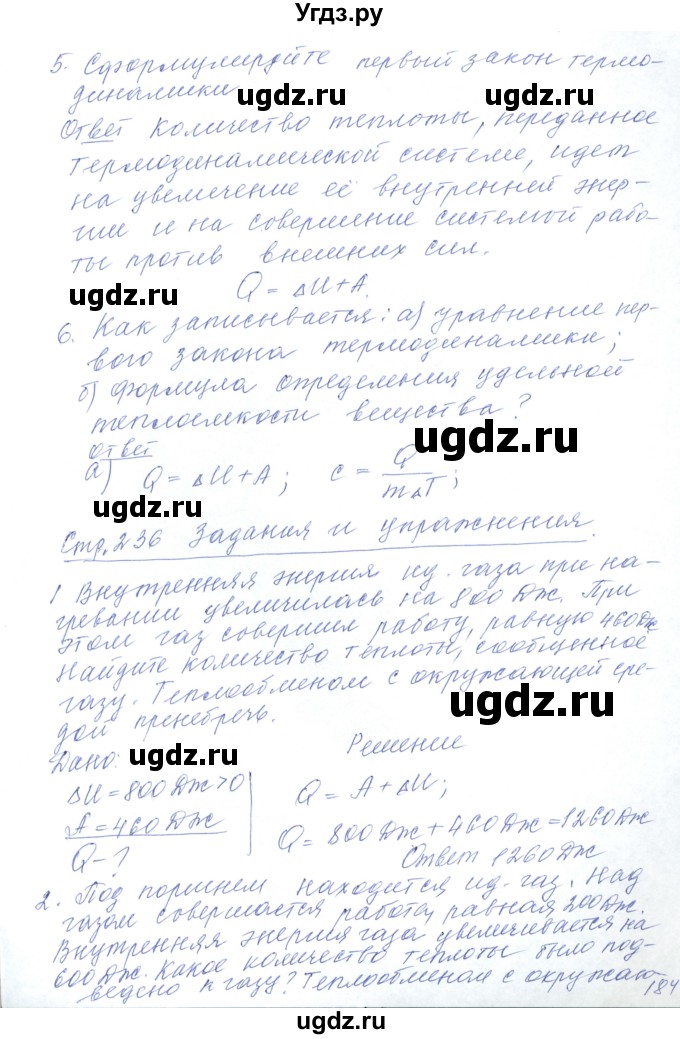 Угдз.ру
5. Сформулируйте первый закон термо-
динамики
ugdz.ru ugdz.ru
Ответ Количество теплоты, переданное
термодинамической системе, идет
на увеличение её внутренней энер-
гии и на совершение системой рабо-
ты против внешних сил.
Q = ΔU+A.
ugdz.ru
6. Как записывается: а) уравнение пер-
вого закона термодинамики;
б) формула определения удельной
теплоемкости вещества?
ugdz.ru
Ответ
а) Q = ΔU+A; c = Q/mΔT;
ugdz.ru
Стр. 236 Задания и упражнения.
1 Внутренняя энергия ид. газа при на-
гревании увеличилась на 800 Дж. При
этом газ совершил работу, равную 460 Дж
Найдите количество теплоты, сообщенное
газу. Теплообменом с окружающей сре-
дой пренебречь.
ugdz.ru ugdz.ru
Дано: Решение
ΔU = 800 Дж > 0 Q = A + ΔU;
A = 460 Дж Q = 800 Дж + 460 Дж = 1260 Дж
Q - ? Ответ 1260 Дж
2. Под поршнем находится ид. газ. Над
газом совершается работа, равная 200 Дж.
Внутренняя энергия газа увеличивается на
600 Дж. Какое количество теплоты было под-
ведено к газу? Теплообменом с окружаю-
184
ugdz.ru ugdz.ru
ugdz.ru